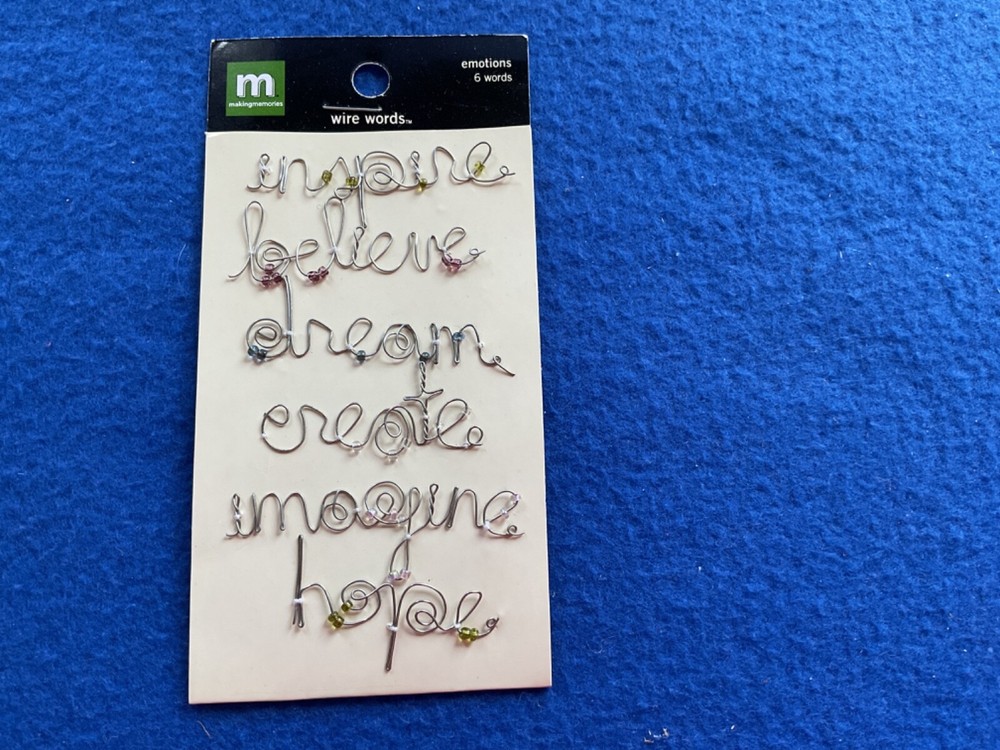 m
makingmemories
emotions
6 words
wire words™
inspire
believe
dream
create
imagine
hope